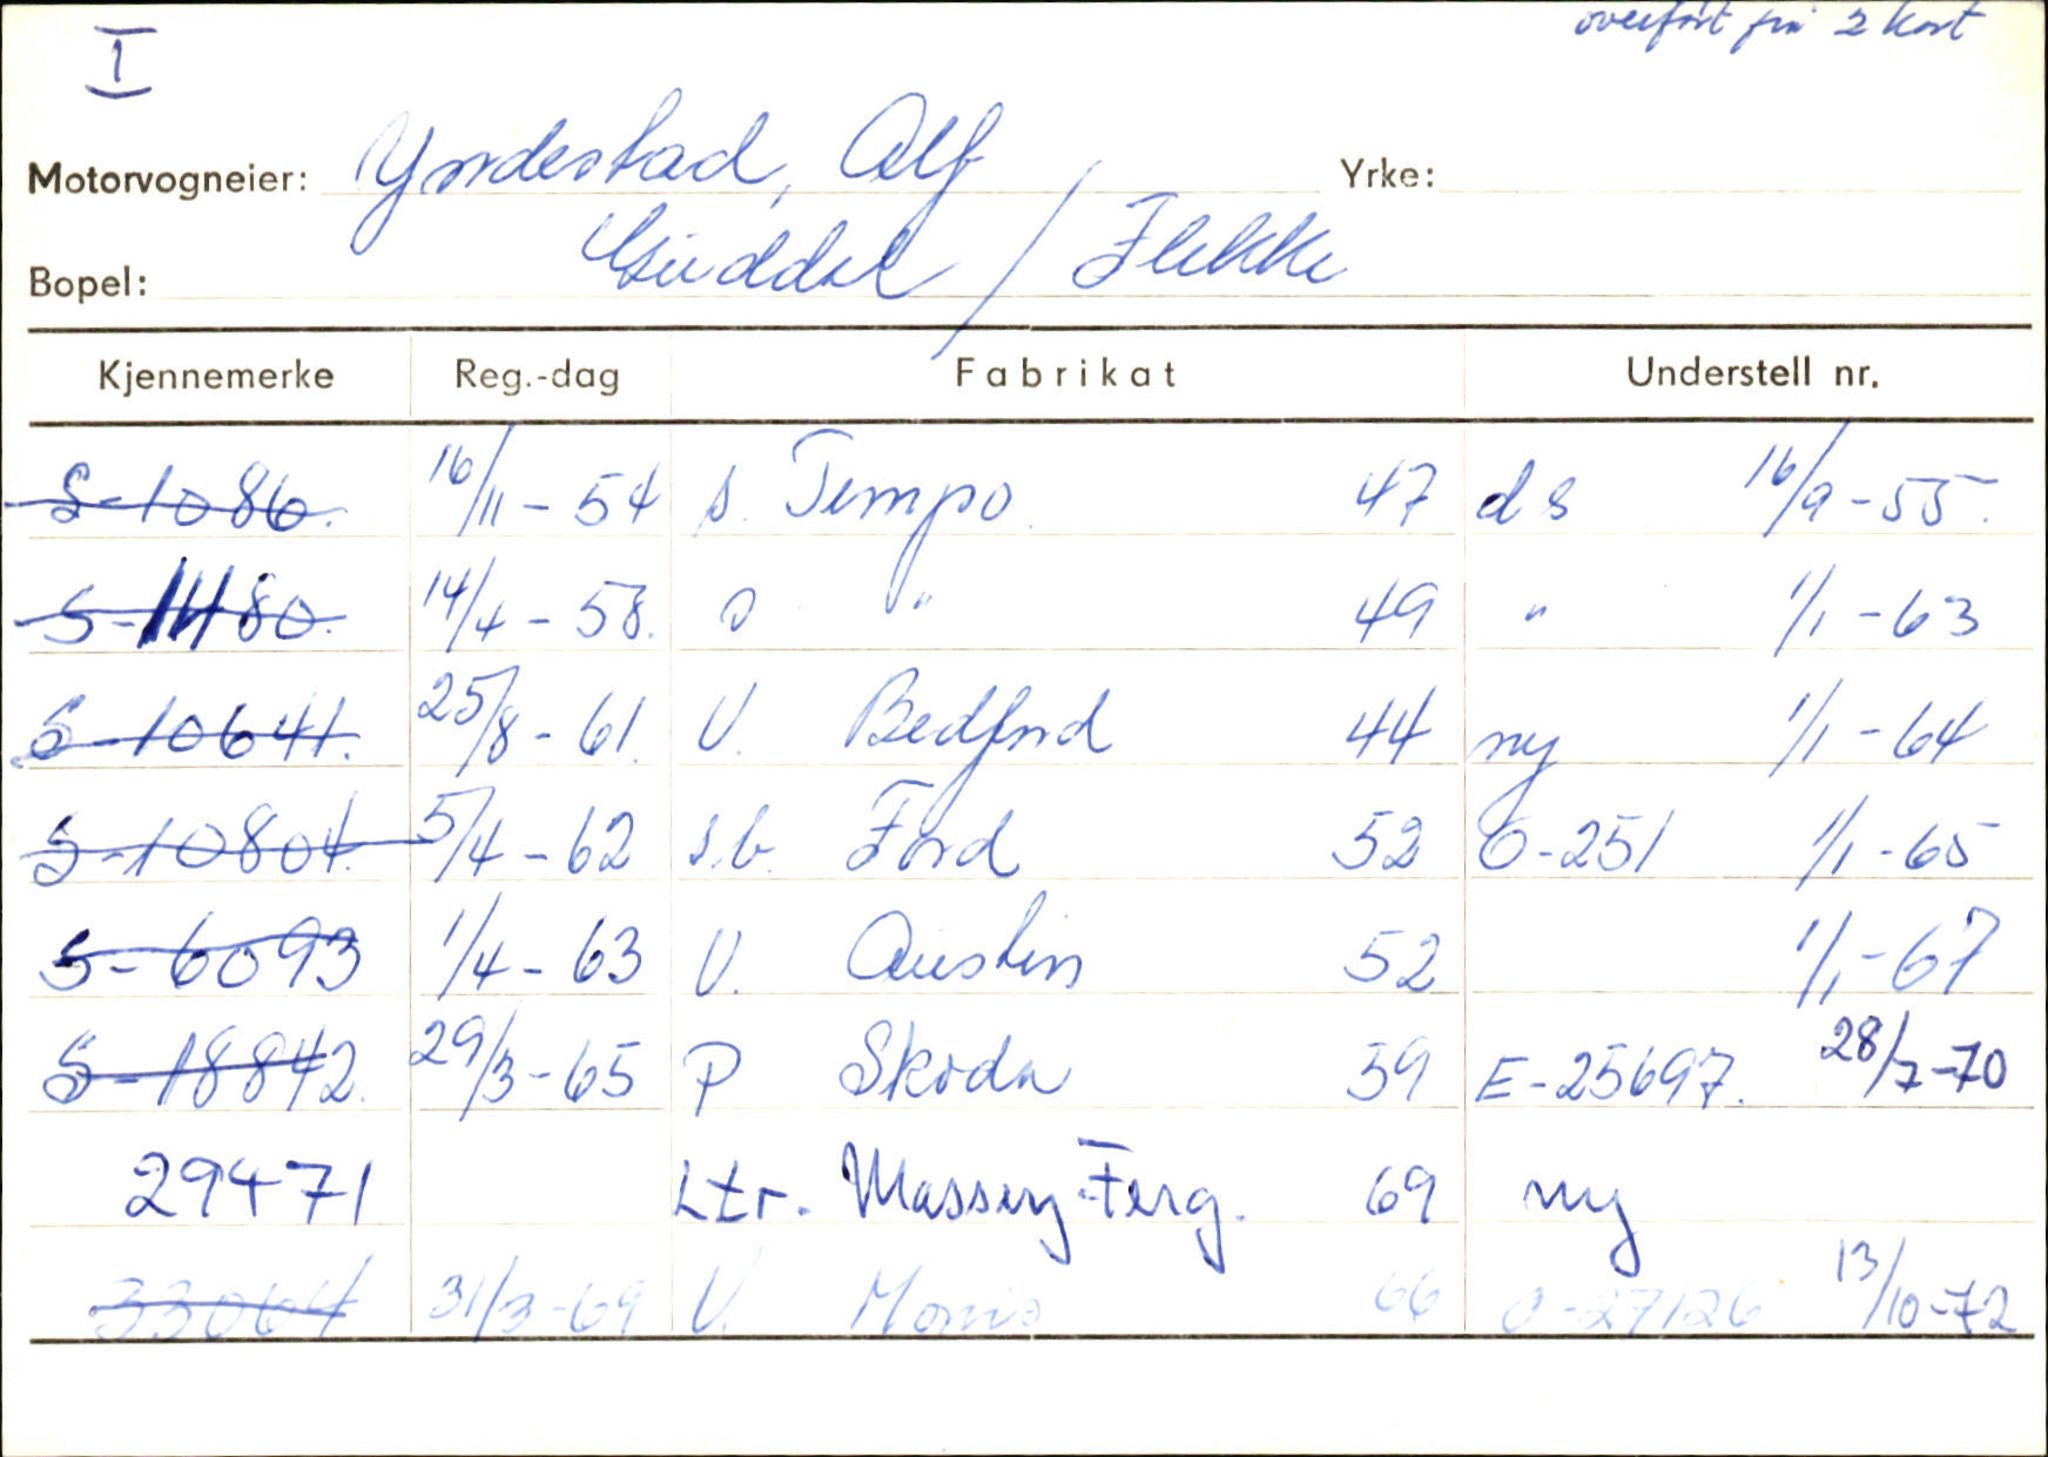 overført på 2 kort
I
Motorvogneier: Yndestad, Alf Yrke:
Bopel: Guddal / Flekke
Kjennemerke Reg.-dag Fabrikat Understell nr.
S-1086. 16/11-54 s. Tempo. 47 ds 16/9-55.
S-1480. 14/4-58. s " 49 " 1/1-63
S-10641. 25/8-61. V. Bedford 44 ny 1/1-64
S-10804. 5/4-62 s.b. Ford 52 O-251 1/1-65
S-6093 1/4-63 V. Austin 52 1/1-67
S-18842. 29/3-65 P Skoda 59 E-25697. 28/7-70
29471 Ltr. Massey-Ferg. 69 ny
33064 31/3-69 V. Morris 66 O-27126 13/10-72